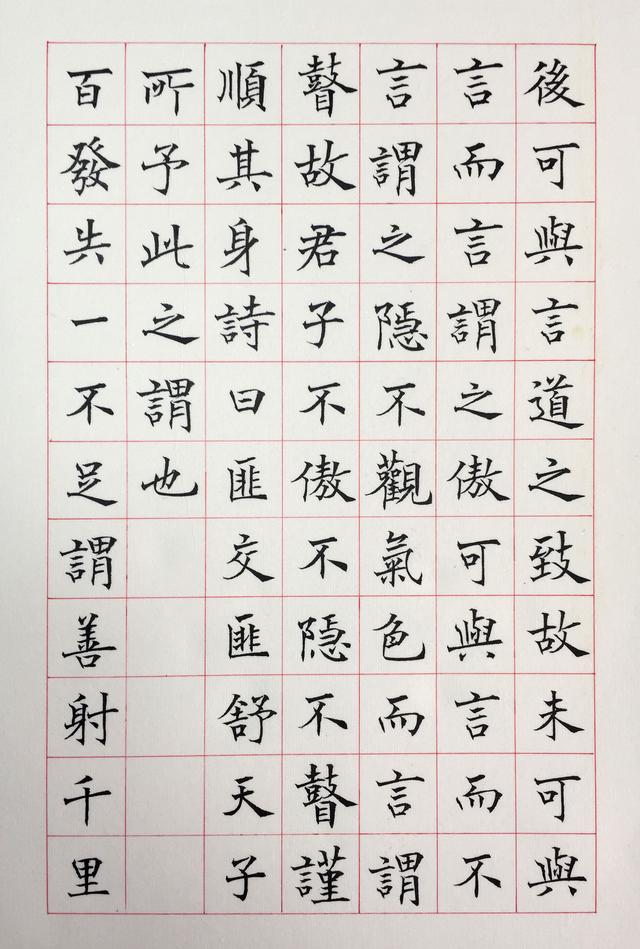 後可與言道之致故未可與
言而言謂之傲可與言而不
言謂之隱不觀氣色而言謂
瞽故君子不傲不隱不瞽謹
順其身詩曰匪交匪舒天子
所予此之謂也
百發失一不足謂善射千里